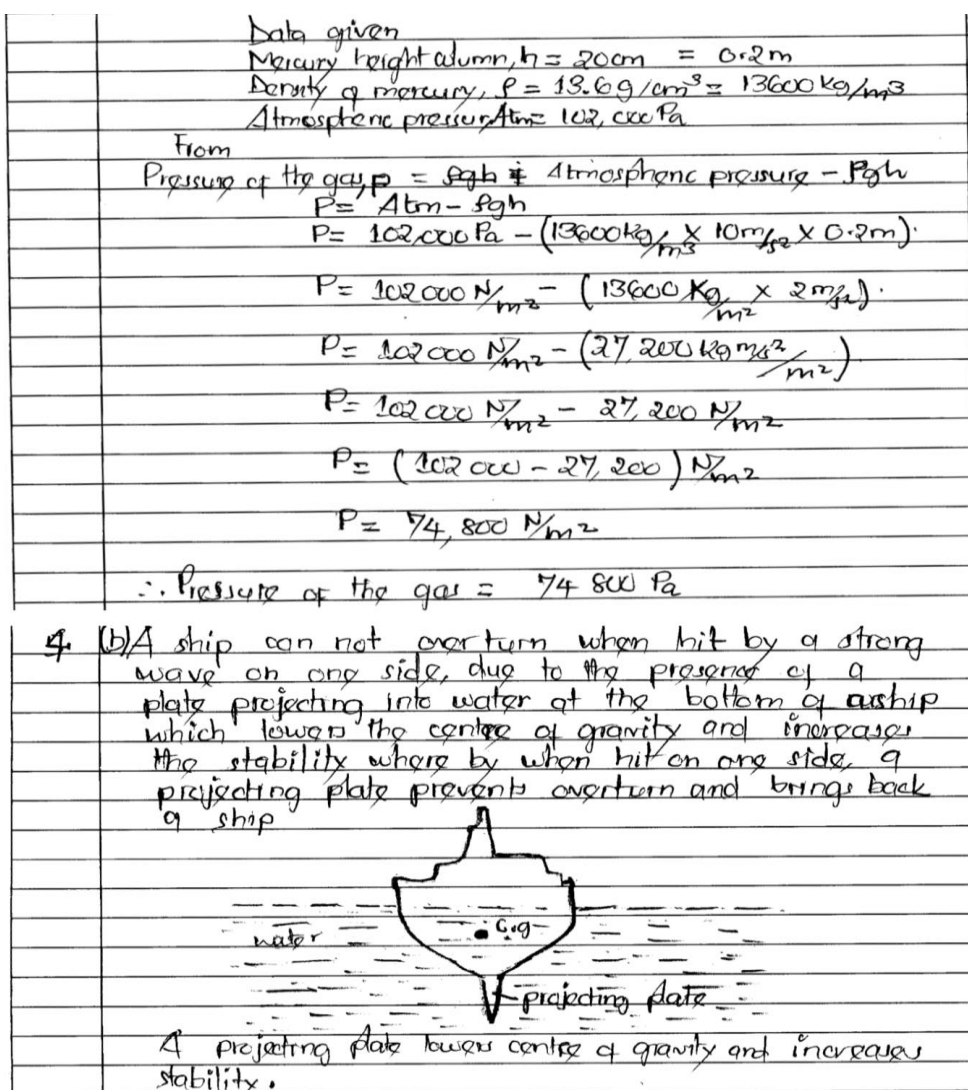 Data given
Mercury height column, h = 20cm = 0.2m
Density of mercury, ρ = 13.6g/cm³ = 13600 Kg/m³
Atmospheric pressure, Atm = 102,000 Pa
From
Pressure of the gas, p = ρgh + Atmospheric pressure - ρgh
P = Atm - ρgh
P = 102,000 Pa - (13600 kg/m³ × 10m/s² × 0.2m).
P = 102000 N/m² - (13600 Kg/m² × 2 m/s²).
P = 102 000 N/m² - (27,200 kg m/s²/m²)
P = 102 000 N/m² - 27,200 N/m²
P = (102 000 - 27,200) N/m²
P = 74,800 N/m²
∴ Pressure of the gas = 74 800 Pa
4. (b) A ship can not overturn when hit by a strong
wave on one side, due to the presence of a
plate projecting into water at the bottom of a ship
which lowers the centre of gravity and increases
the stability where by when hit on one side, a
projecting plate prevents overturn and brings back
a ship
C.g
water
projecting plate
A projecting plate lowers centre of gravity and increases
stability.